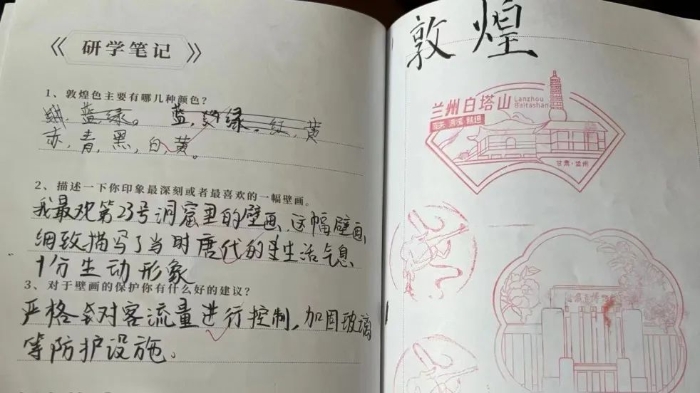 《 研学笔记 》
1、敦煌色主要有哪几种颜色?
蓝绿。 蓝, 绿, 红, 黄
赤, 青, 黑, 白, 黄。
2、描述一下你印象最深刻或者最喜欢的一幅壁画。
我最欢第23号洞窟里的壁画,这幅壁画,
细致描写了当时唐代的生活气息,
十分生动形象
3、对于壁画的保护你有什么好的建议?
严格对客流量进行控制,加固玻璃
等防护设施。
敦煌
兰州白塔山
Lanzhou
Baitashan
甘肃·兰州